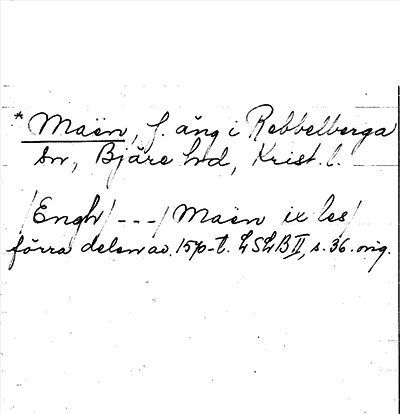 * Maën, f. äng i Rebbelberga
sn, Bjäre hd, Krist. l.
/Engh/ --- / Maën ix les/
förra delen av 15/0-t. LSLB II, s. 36. orig.